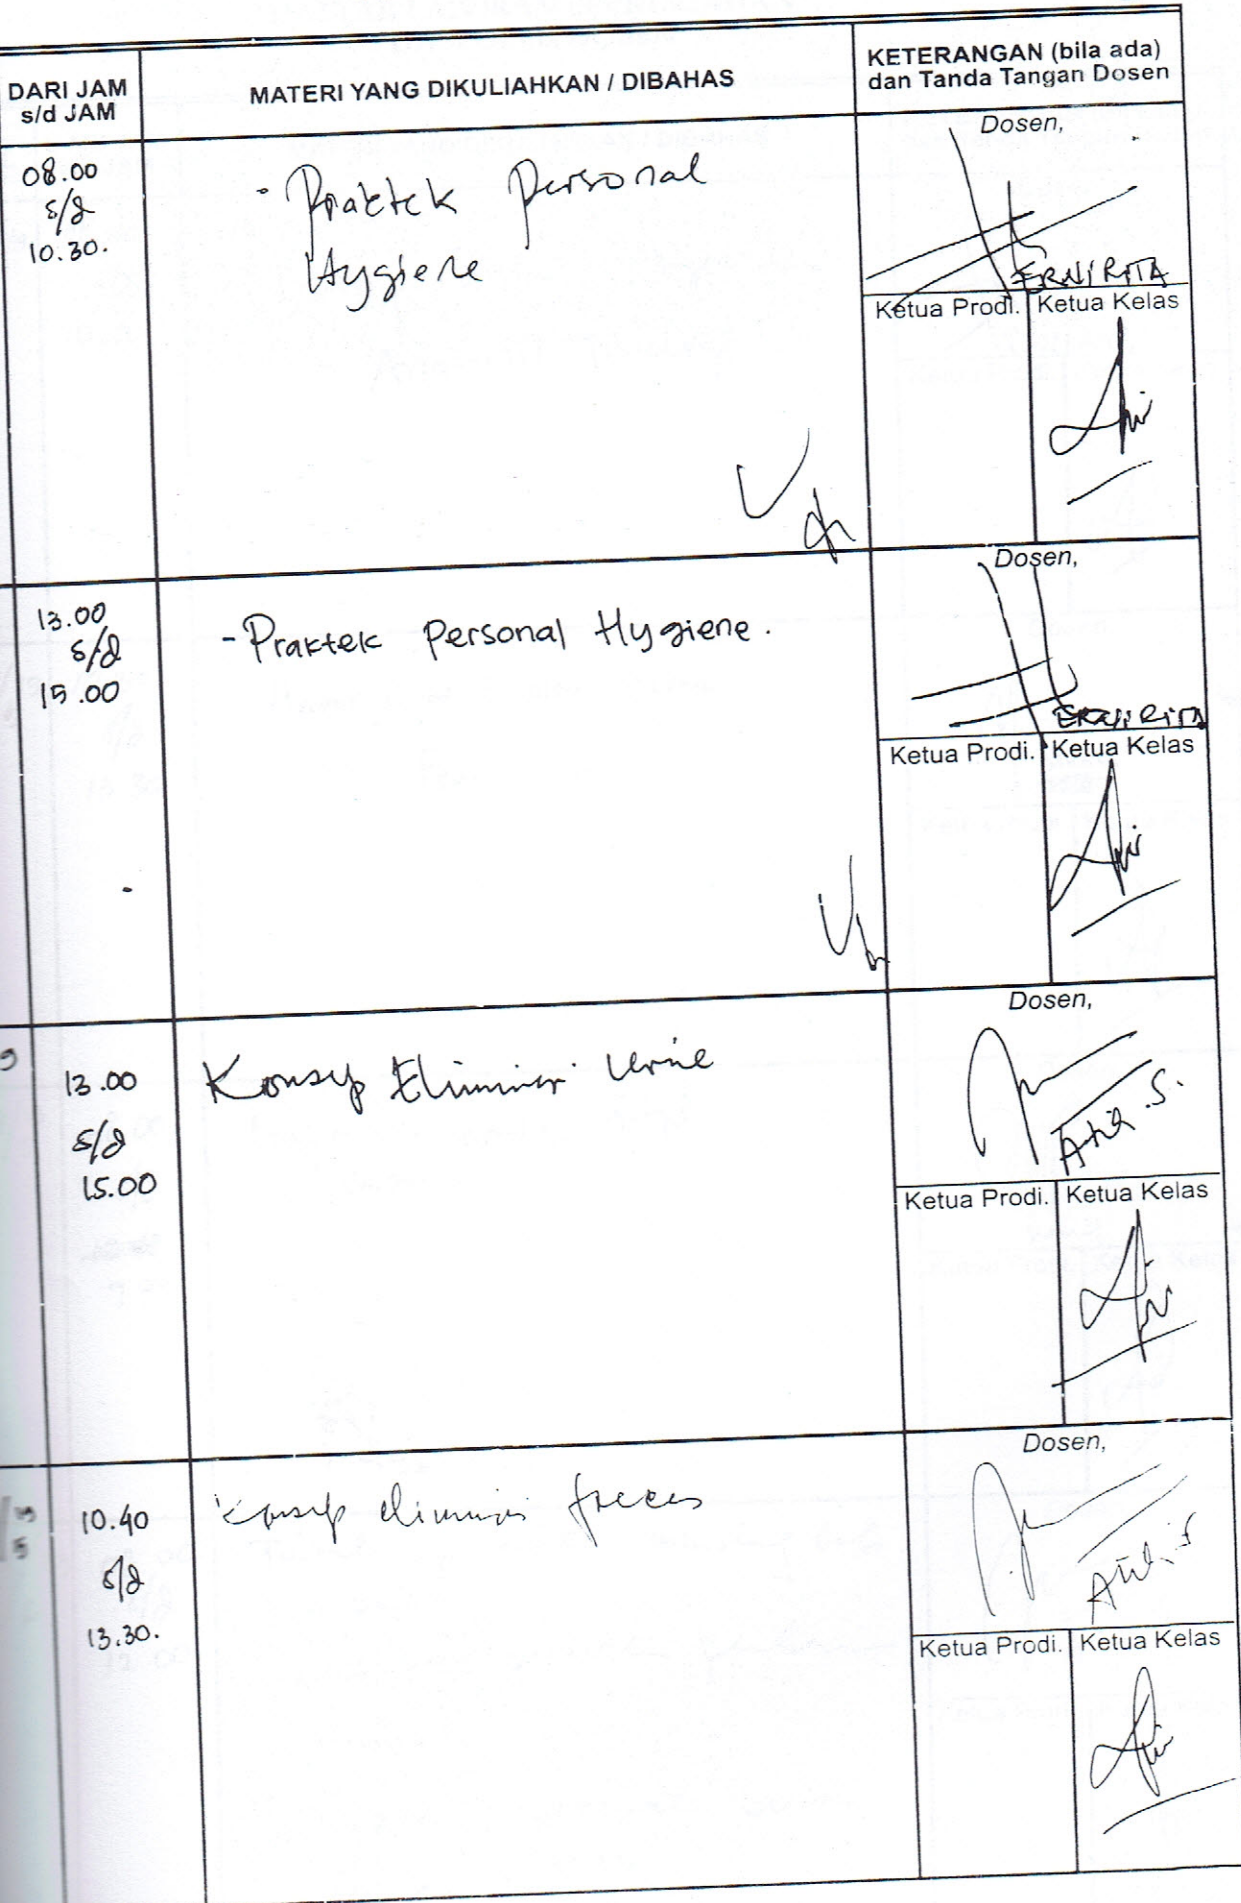 DARI JAM
s/d JAM
MATERI YANG DIKULIAHKAN / DIBAHAS
KETERANGAN (bila ada)
dan Tanda Tangan Dosen
08.00
s/d
10.30.
- Praktek Personal
Hygiene
Dosen,
ERNI RITA
Ketua Prodi.
Ketua Kelas
13.00
s/d
15.00
- Praktek Personal Hygiene.
Dosen,
ERNI RITA
Ketua Prodi.
Ketua Kelas
13.00
s/d
15.00
Konsep Eliminasi Urine
Dosen,
Ketua Prodi.
Ketua Kelas
10.40
s/d
13.30.
Konsep eliminasi
Dosen,
Ketua Prodi.
Ketua Kelas